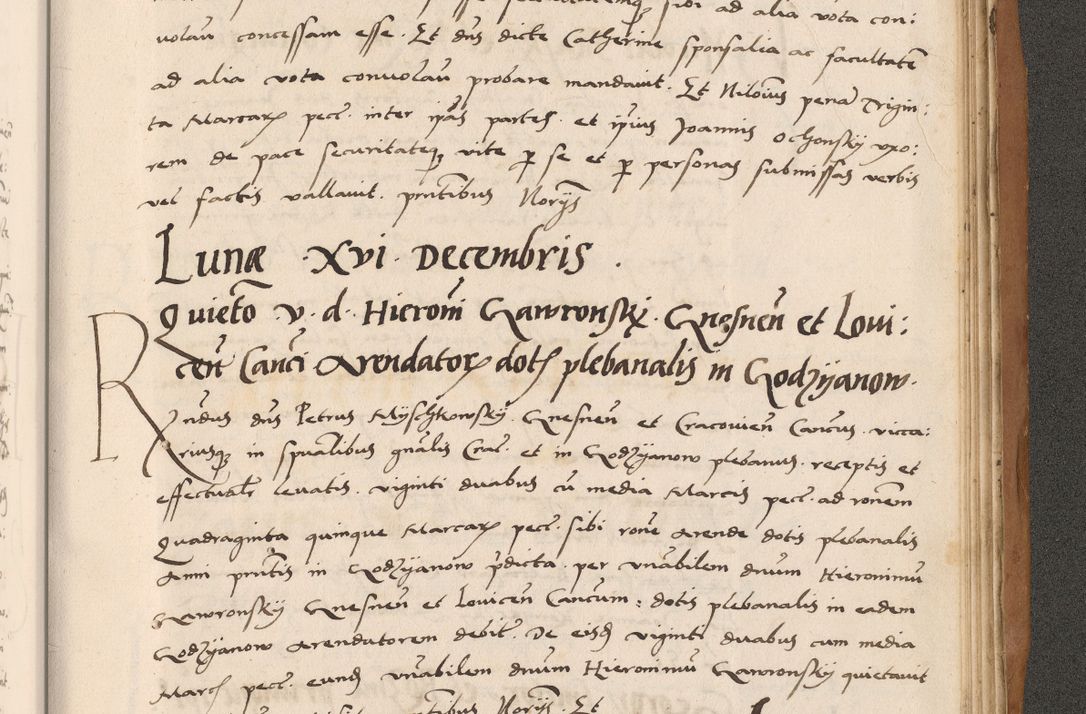 sibi ad alia vota con:
uolañ concessam esse. Et dñs dicte Catherine sponsalia ac facultatẽ
ad alia vota conuolañ probare mandauit. Et Nilõius pena Trigin:
ta Marcarꝝ pecẽ. inter ip̃as partes. et ip̃ius Joannis Ochonsky vxo:
rem de pace securitateqꝫ vite ꝑ se et ꝑ personas submissas verbis
vel factis vallauit. pn̄tibus Norỹs
Lunæ · Xvi · Decembris .
Quietõ v. d. Hieroñi Gawronskj. Gnesneñ et Loui:
ceñ Canci Arendatorꝝ dotꝭ plebanalis in Godzyanow.
Rñdus dñs Petrus Myschkowsky. Gnesneñ et Cracouieñ Cancus. vicca:
riusqꝫ in sp̃ualibus gñalis Crac̃. et in Godzyanow plebanus. receptis et
effectualr̃ leuatis. viginti duabus cũ media Marcis pecẽ. ad ronem
Quadraginta quinque Marcarꝝ pecẽ. sibi rone Arende dotis plebanalis
Anni pn̄tis in Godzyanow p̃dicta. per vnabilem dnum Hieronimũ
Gawronsky Gnesneñ et Louiceñ Cancum, dotis plebanalis in eadem
Godzyanow Arendatorem debit̃. De eisdꝫ viginti duabus cum media
Marcꝭ pecẽ eundꝫ vnabilem dnum Hieronimũ Gawronsky quietauit
pn̄tibus Norỹs. Et